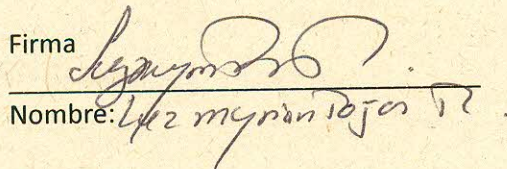 Firma
Nombre: Luz myrian Rojas R.